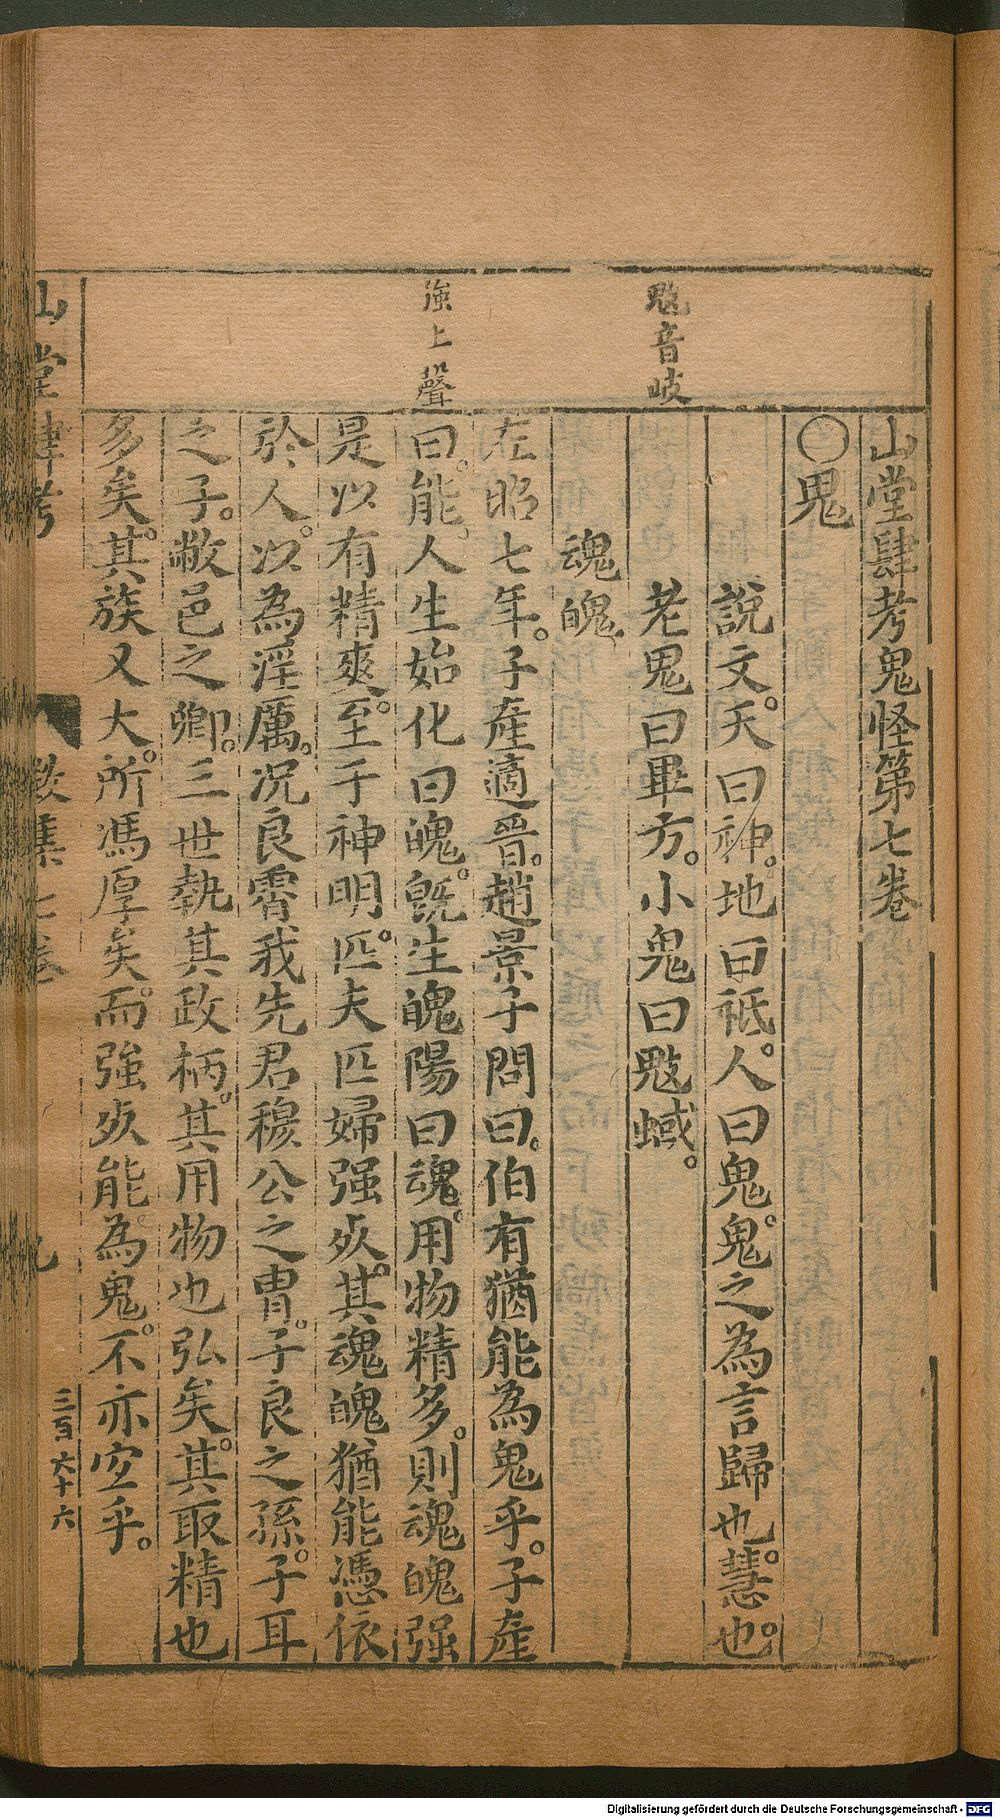 山堂肆考鬼怪第七卷
〇鬼
說文。天曰神。地曰祗。人曰鬼。鬼之為言歸也。慧也。
鬾音岐
老鬼曰畢方。小鬼曰鬾䘆。
魂魄
左昭七年。子產適晉。趙景子問曰。伯有猶能為鬼乎。子產
強上聲
曰。能。人生始化曰魄。旣生魄陽曰魂。用物精多。則魂魄强
是以有精爽。至于神明。匹夫匹婦强死。其魂魄猶能憑依
於人。以為淫厲。况良霄我先君穆公之冑。子良之孫。子耳
之子。敝邑之卿。三世執其政柄。其用物也弘矣。其取精也
多矣。其族又大。所馮厚矣。而強死能為鬼。不亦宜乎。
山堂肆考
七卷
九
三百六十六
Digitalisierung gefördert durch die Deutsche Forschungsgemeinschaft - DFG